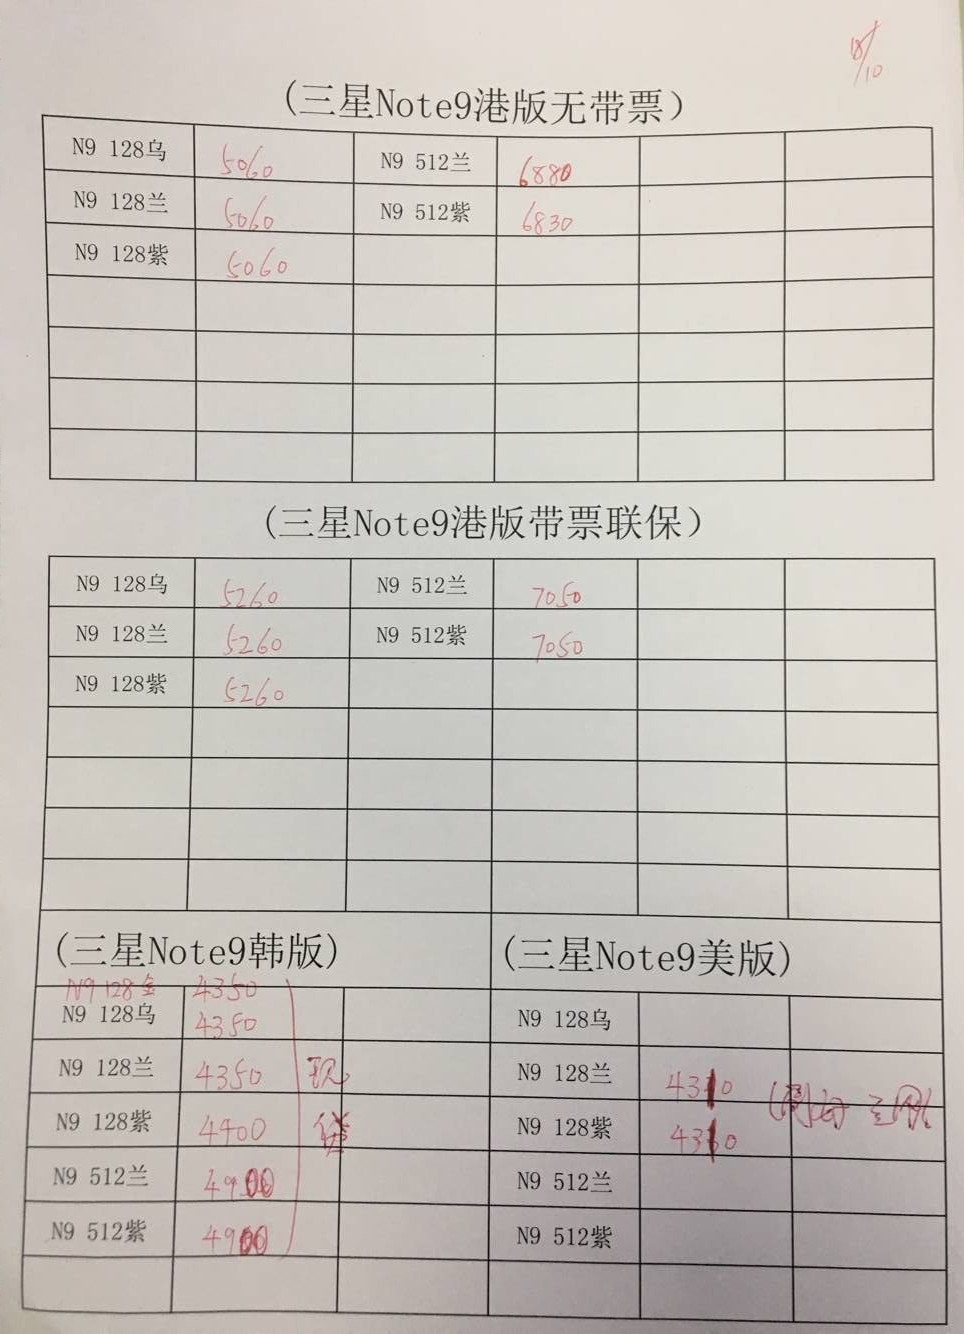 18/10
(三星Note9港版无带票)
N9 128乌 5060 N9 512兰 6880
N9 128兰 5060 N9 512紫 6830
N9 128紫 5060
(三星Note9港版带票联保)
N9 128乌 5260 N9 512兰 7050
N9 128兰 5260 N9 512紫 7050
N9 128紫 5260
(三星Note9韩版) (三星Note9美版)
N9 128金 4350
N9 128乌 4350 N9 128乌
N9 128兰 4350 现 N9 128兰 4310
N9 128紫 4400 N9 128紫 4310
N9 512兰 4900 N9 512兰
N9 512紫 4900 N9 512紫